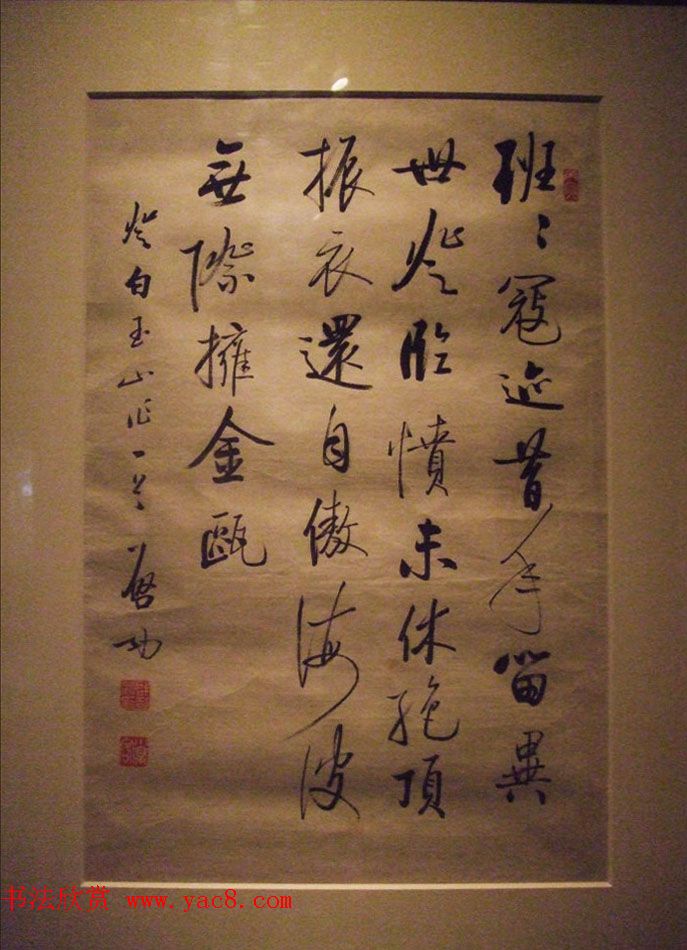 班〻寇迹昔年留異
世登臨憤未休絕頂
振衣還自傲海波
無際擁金甌
登白玉山作一首 啓功
书法欣赏 www.yac8.com